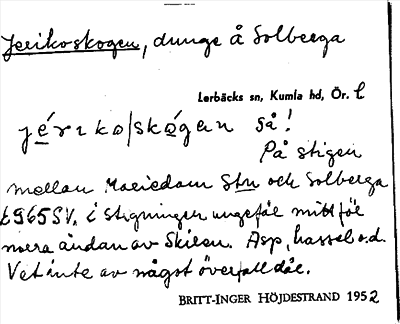 Jerikoskogen, dunge å Solberga
Lerbäcks sn, Kumla hd, Ör. l
jérıko/skógen så!
På stigen
mellan Mariedam Stn och Solberga
£965SV. i stigningen ungefär mitt för
norra ändan av Skiren. Asp, hassel o.d.
Vet inte av något överfall där.
BRITT-INGER HÖJDESTRAND 1952